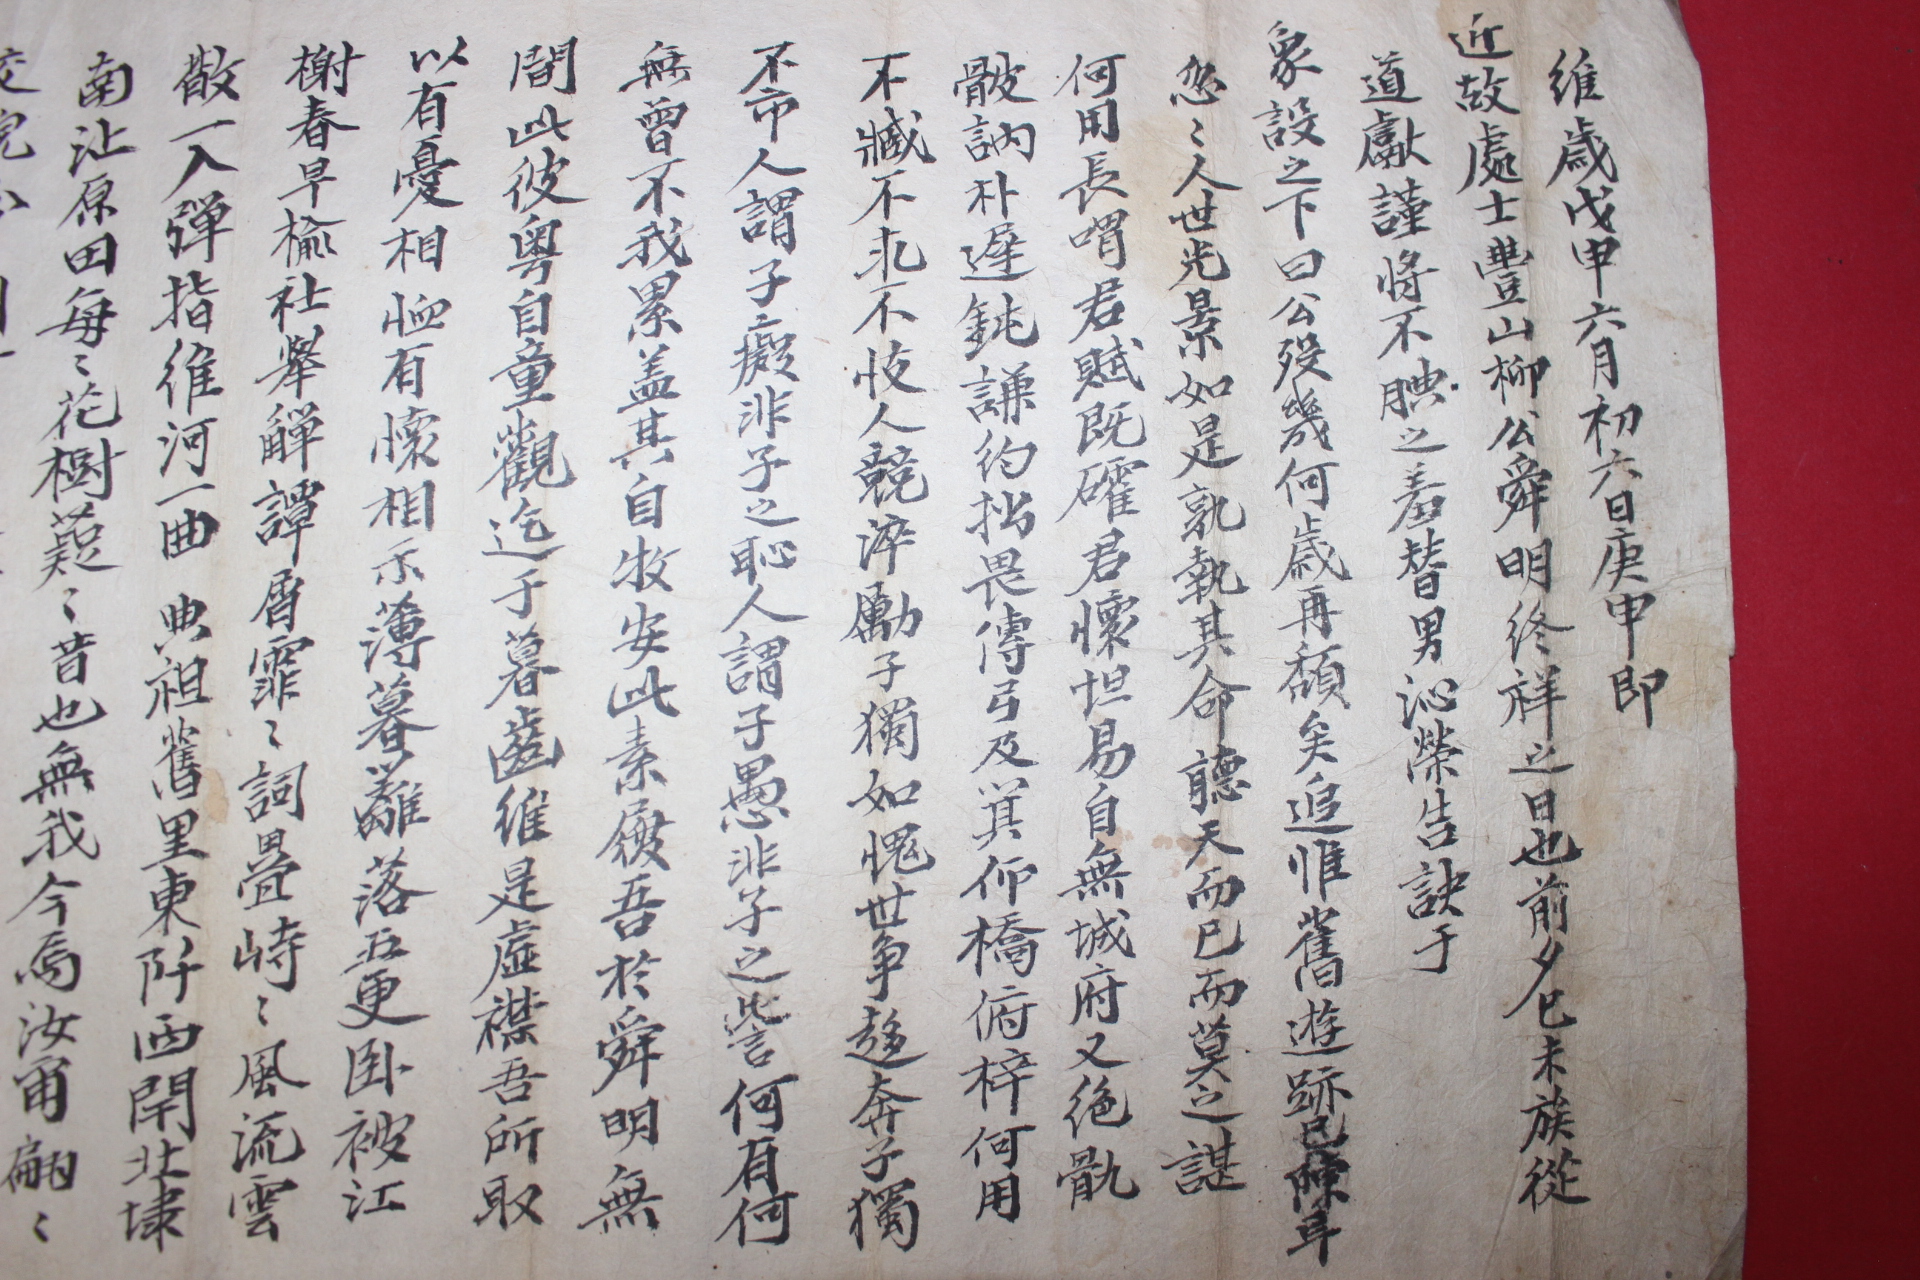 維歲戊申六月初六日庚申即
近故處士豊山柳公舜明終祥之日也前夕己未族從
道獻謹將不腆之羞替男沁榮告訣于
象設之下曰公歿幾何歲再頹矣追惟舊遊跡已陳耳
忽〻人世光景如是孰執其命聽天而已而莫之謀
何用長喟君賦既確君懷坦易自無城府又絶骩
骳訥朴遲鈍謙約拙畏傳弓及箕仰橋俯梓何用
不臧不求不忮人競淬勵子獨如愧世争趍奔子獨
不巿人謂子癡非子之恥人謂子愚非子之訾何有何
無曾不我累盖其自牧安此素履吾於舜明無
間此彼粤自童觀迄于暮齒維是虛襟吾所取
以有憂相恤有懷相示薄暮籬落五更卧被江
榭春早楡社擧觶譚屑霏〻詞疊峙〻風流雲
散一入彈指維河一曲典祖舊里東阡西閈北埭
南沚原田每〻花樹薿〻昔也無我今焉汝甭翩〻